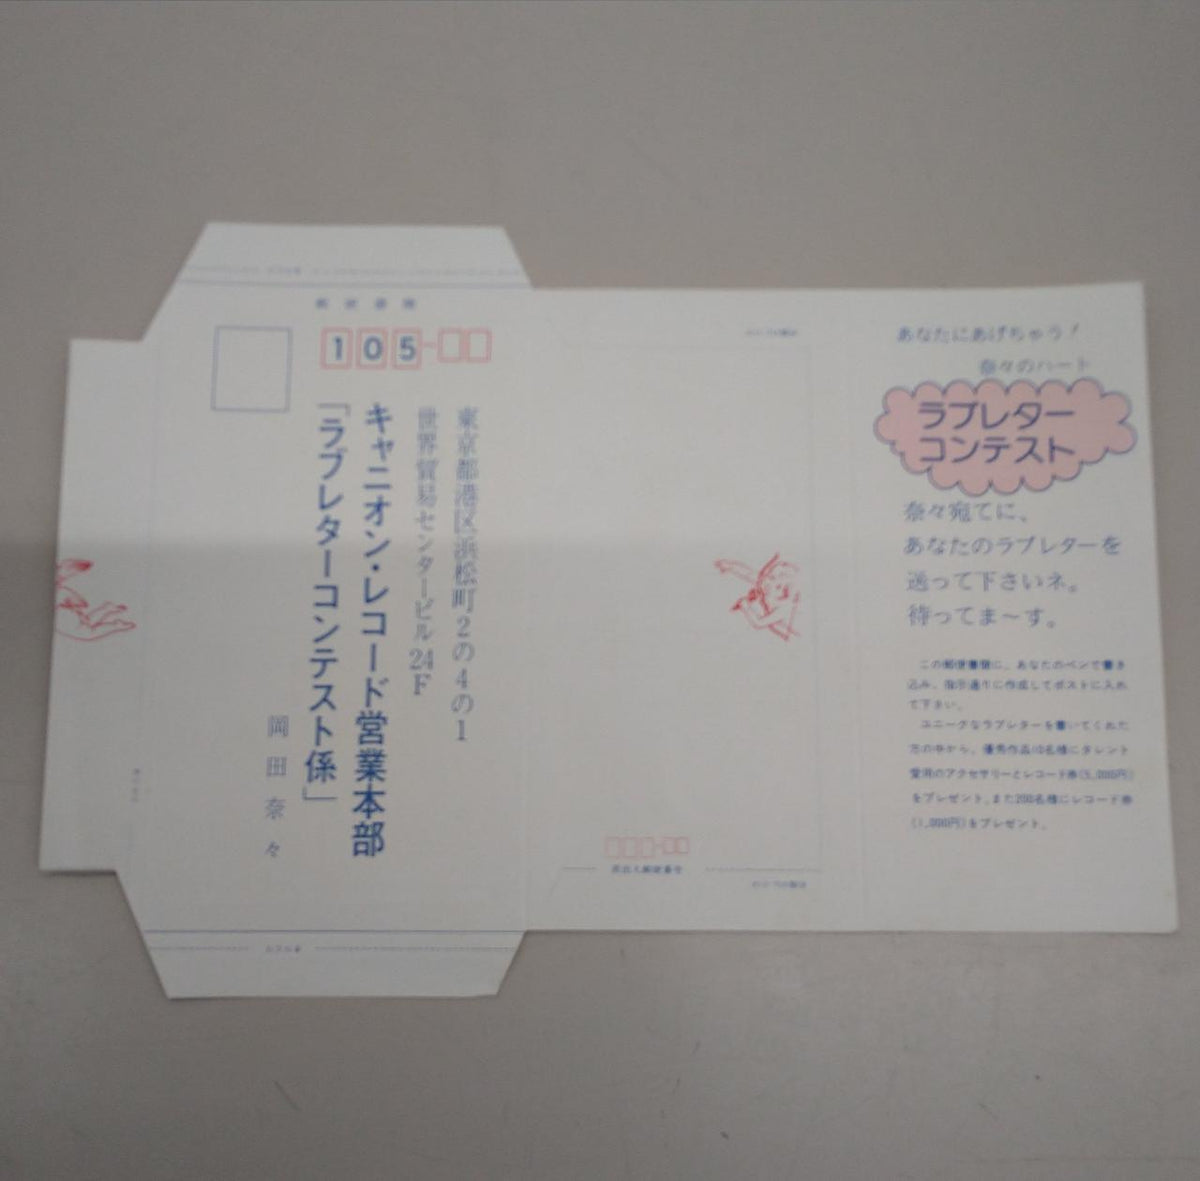 郵便書簡
105
東京都港区浜松町2の4の1
世界貿易センタービル24F
キャニオン・レコード営業本部
「ラブレターコンテスト係」
岡田奈々
差出人郵便番号
あなたにあげちゃう!
奈々のハート
ラブレター
コンテスト
奈々宛てに、
あなたのラブレターを
送って下さいネ。
待ってま〜す。
この郵便書簡に、あなたのペンで書き
込み、指示通りに作成してポストに入れ
て下さい。
ユニークなラブレターを書いてくれた
方の中から、優秀作品10名様にタレント
愛用のアクセサリーとレコード券(5,000円)
をプレゼント、また200名様にレコード券
(1,000円)をプレゼント。